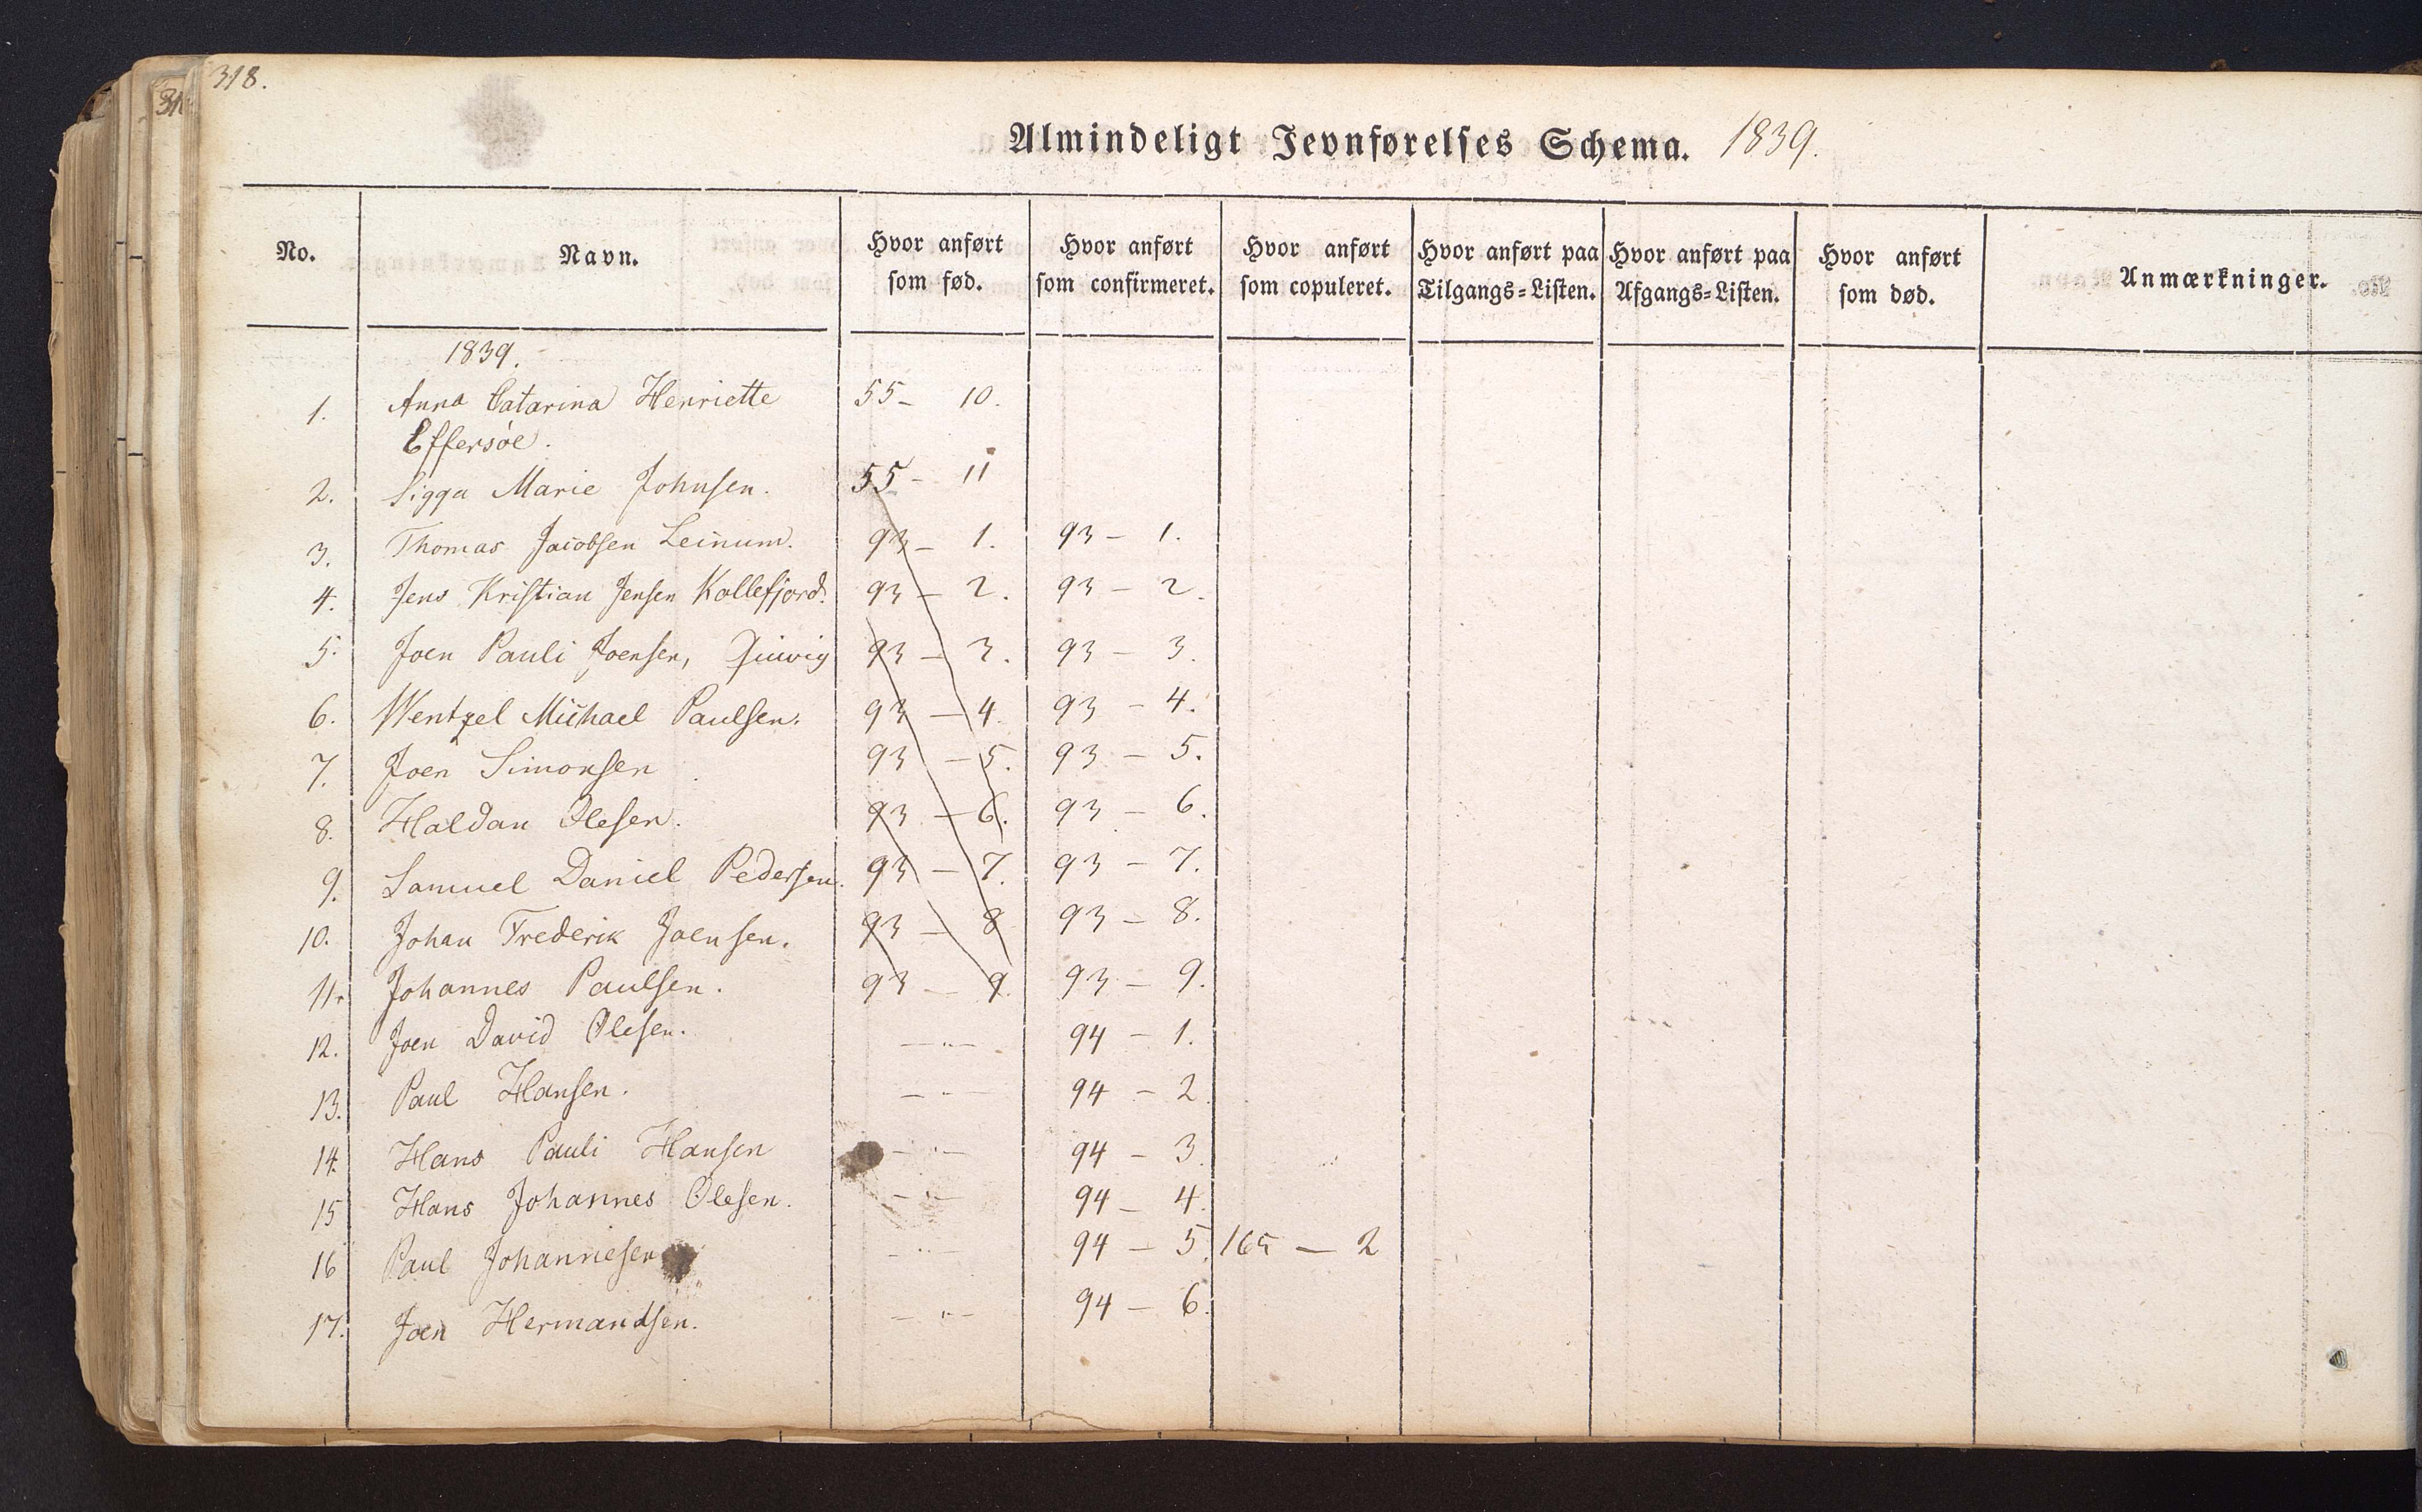 318.
Almindeligt Jevnførelses Schema. 1839.
No. Navn. Hvor anført som fød. Hvor anført som confirmeret. Hvor anført som copuleret. Hvor anført paa Tilgangs-Listen. Hvor anført paa Afgangs-Listen. Hvor anført som død. Anmærkninger.
1839.
1. Anna Catarina Henriette 55 - 10.
Effersöe.
2. Sigga Marie Johnsen. 55 - 11
3. Thomas Jacobsen Leinum. 93 - 1. 93 - 1.
4. Jens Kristian Jensen Kollefjord. 93 - 2. 93 - 2.
5. Joen Pauli Joensen, Quivig 93 - 3. 93 - 3.
6. Wentzel Michael Paulsen. 93 - 4. 93 - 4.
7. Joen Simonsen 93 - 5. 93 - 5.
8. Haldan Olesen. 93 - 6. 93 - 6.
9. Samuel Daniel Pedersen. 93 - 7. 93 - 7.
10. Johan Frederik Joensen. 93 - 8 93 - 8.
11. Johannes Paulsen. 93 - 9. 93 - 9.
12. Joen David Olesen. - " - 94 - 1.
13. Paul Hansen. - " - 94 - 2.
14. Hans Pauli Hansen - " - 94 - 3.
15 Hans Johannes Olesen. - " - 94 - 4.
16 Paul Johannesen - " - 94 - 5. 165 - 2
17. Joen Hermandsen. - " - 94 - 6.